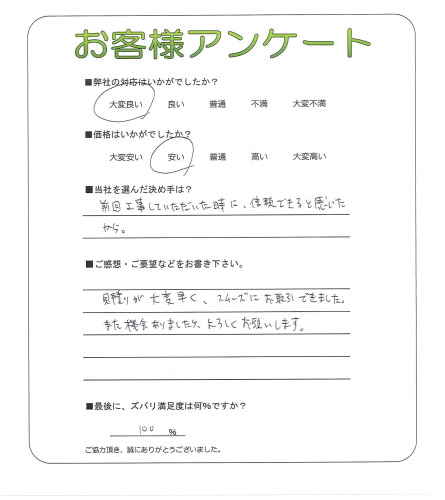 お客様アンケート
■弊社の対応はいかがでしたか?
大変良い 良い 普通 不満 大変不満
■価格はいかがでしたか?
大変安い 安い 普通 高い 大変高い
■当社を選んだ決め手は?
前回工事していただいた時に、信頼できると感じた
から。
■ご感想・ご要望などをお書き下さい。
見積りが大変早く、スムーズにお取引できました。
また機会ありましたら、よろしくお願いします。
■最後に、ズバリ満足度は何%ですか?
100 %
ご協力頂き、誠にありがとうございました。